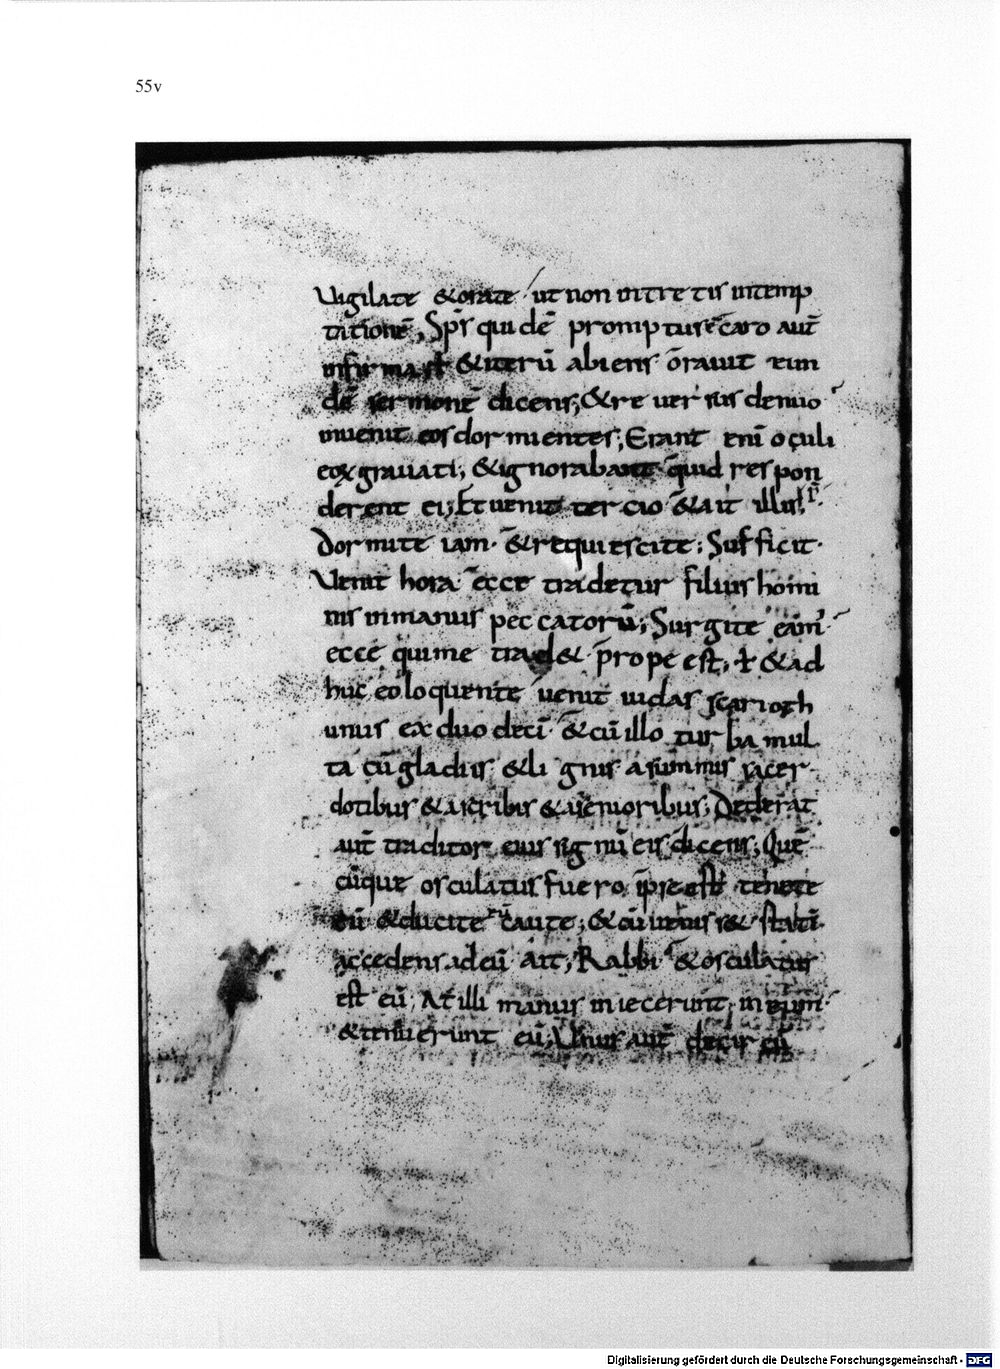 55v
Vigilate & orate ut non intretis intemp
tationē; Sp̄s quidē promptus ē caro aut̄
infirma st̄ & iterū abiens orauit eun
dē sermonē dicens; & reuersus denuo
inuenit eos dormientes; Erant enī oculi
eoꝝ grauati; & ignorabant quid respon
derent ei; Et uenit tercio & ait illis;
Dormite iam · & requiescite; Sufficit ·
Venit hora ecce tradetur filius homi
nis in manus peccatorū; Surgite eam̄
ecce qui me trad& prope est; & ad
huc eo loquente uenit iudas scarioth
unus ex duodecī · & cū illo turba mul
ta cū gladiis & lignis a summis sacer
dotibus & scribis & senioribus; Dederat
aut̄ traditor eius signū eis dicens; Quē
cūque osculatus fuero ipse est tenete
eū & ducite caute; & cū uenisset statī
accedens ad eū ait; Rabbi & osculatus
est eū; At illi manus iniecerunt in eum
& tenuerunt eū; Unus aut̄ de cir cū
Digitalisierung gefördert durch die Deutsche Forschungsgemeinschaft - DFG